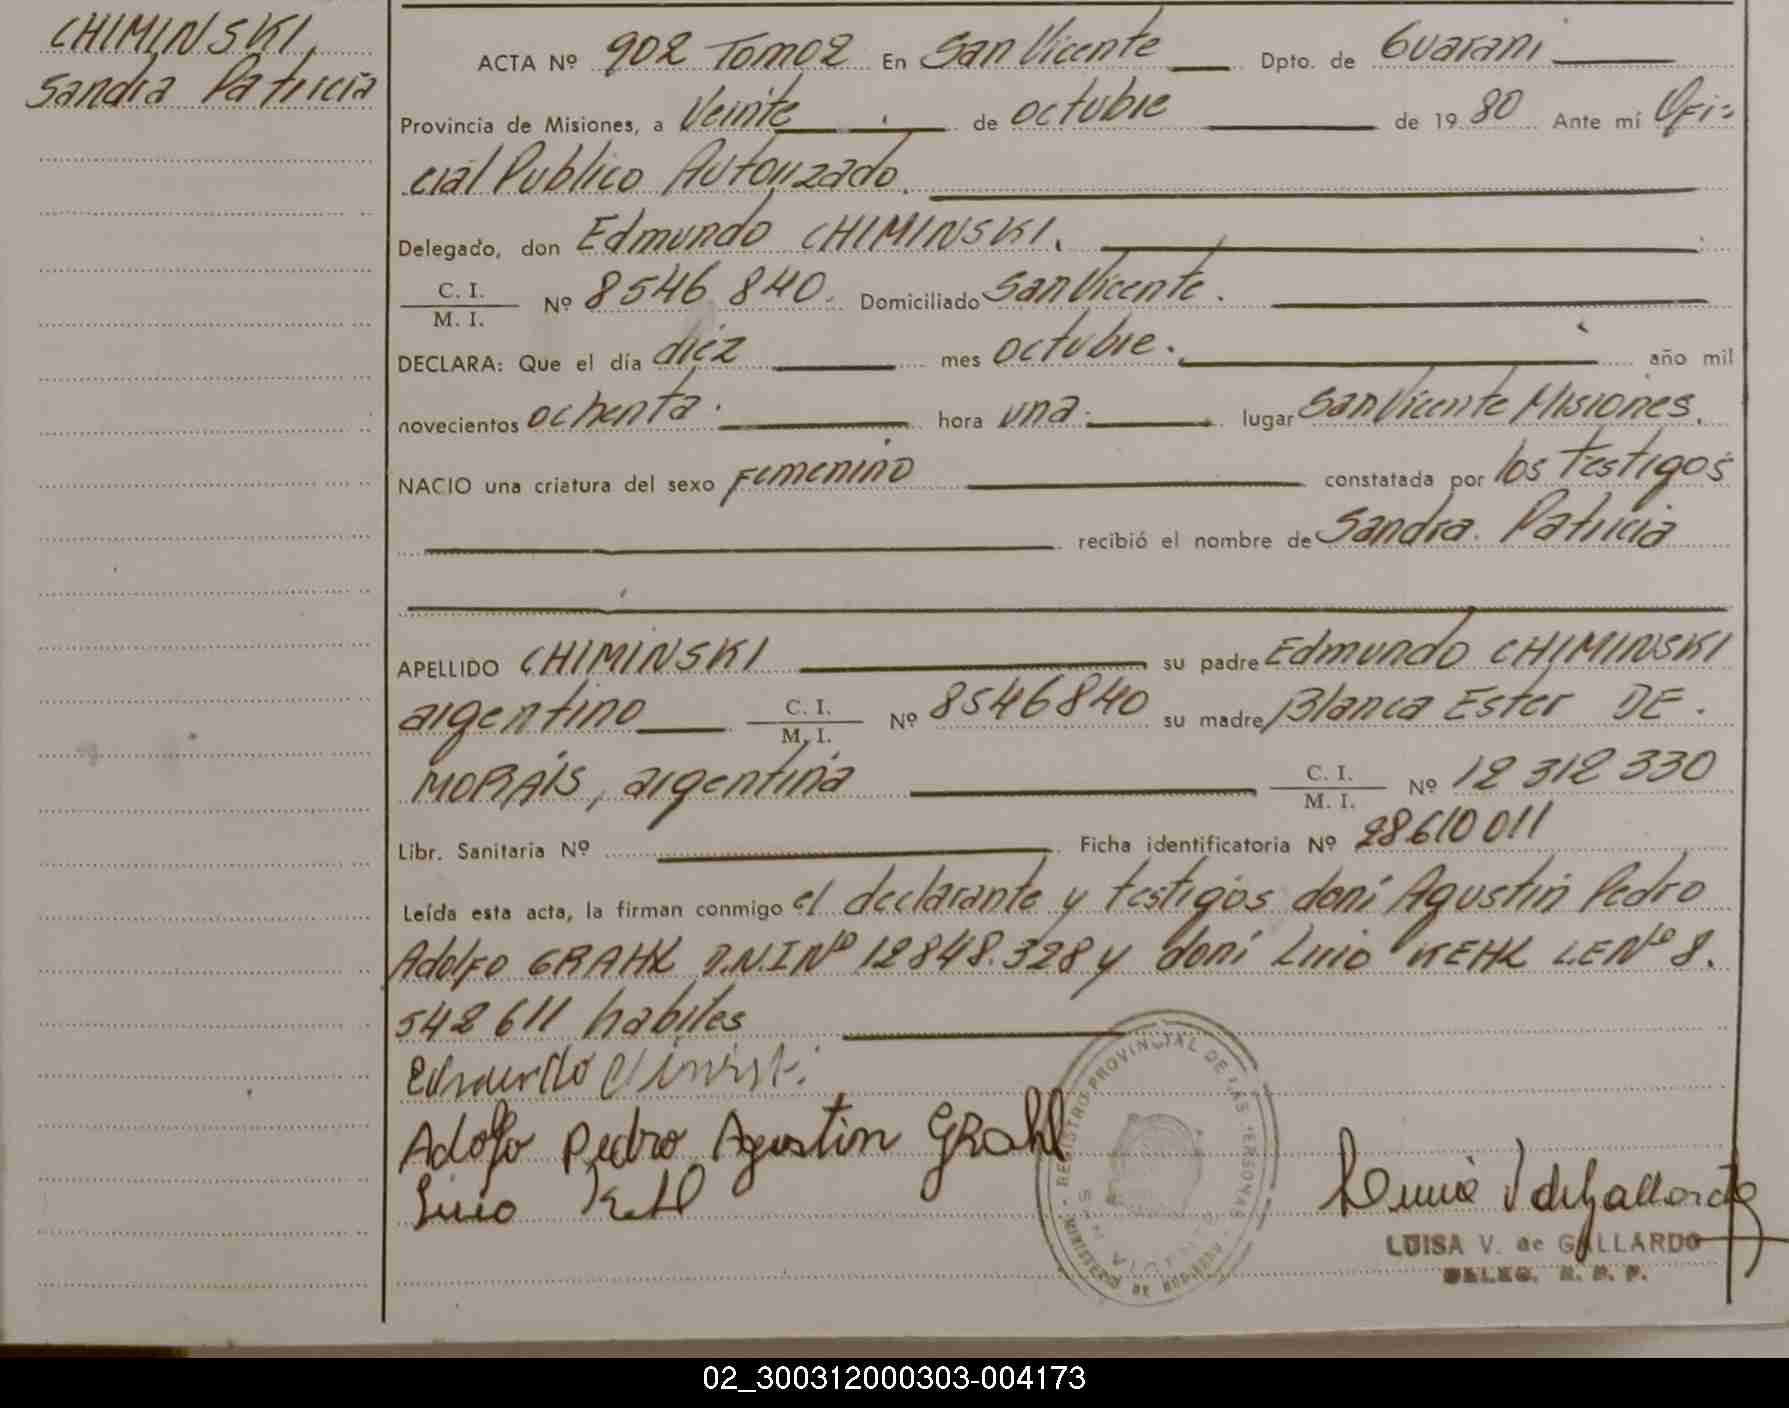 CHIMINSKI,
Sandra Patricia
ACTA Nº 902 Tomo 2 En San Vicente Dpto. de Guarani
Provincia de Misiones, a Veinte de octubre de 1980 Ante mí Ofi-
cial Publico Autorizado.
Delegado, don Edmundo CHIMINSKI.
C. I.
M. I. Nº 8546 840. Domiciliado San Vicente.
DECLARA: Que el día diez mes octubre. año mil
novecientos ochenta. hora una. lugar San Vicente Misiones.
NACIO una criatura del sexo Femenino constatada por los testigos
recibió el nombre de Sandra Patricia
APELLIDO CHIMINSKI su padre Edmundo CHIMINSKI
argentino C. I. M. I. Nº 8546840 su madre Blanca Ester DE
MORAIS, argentina C. I. M. I. Nº 12 312 330
Libr. Sanitaria Nº Ficha identificatoria Nº 28610011
Leída esta acta, la firman conmigo el declarante y testigos doni Agustin Pedro
Adolfo GRAHL D.N.I Nº 12848.328 y doni Lirio KEHL LE Nº 8.
542611 habiles
Adolfo Pedro Agustin GRahl
Lirio Kehl
REGISTRO PROVINCIAL DE LAS PERSONAS
MINISTERIO de GOBIERNO
LUISA V. de GALLARDO
DELEG. R. P. P.
02_300312000303-004173